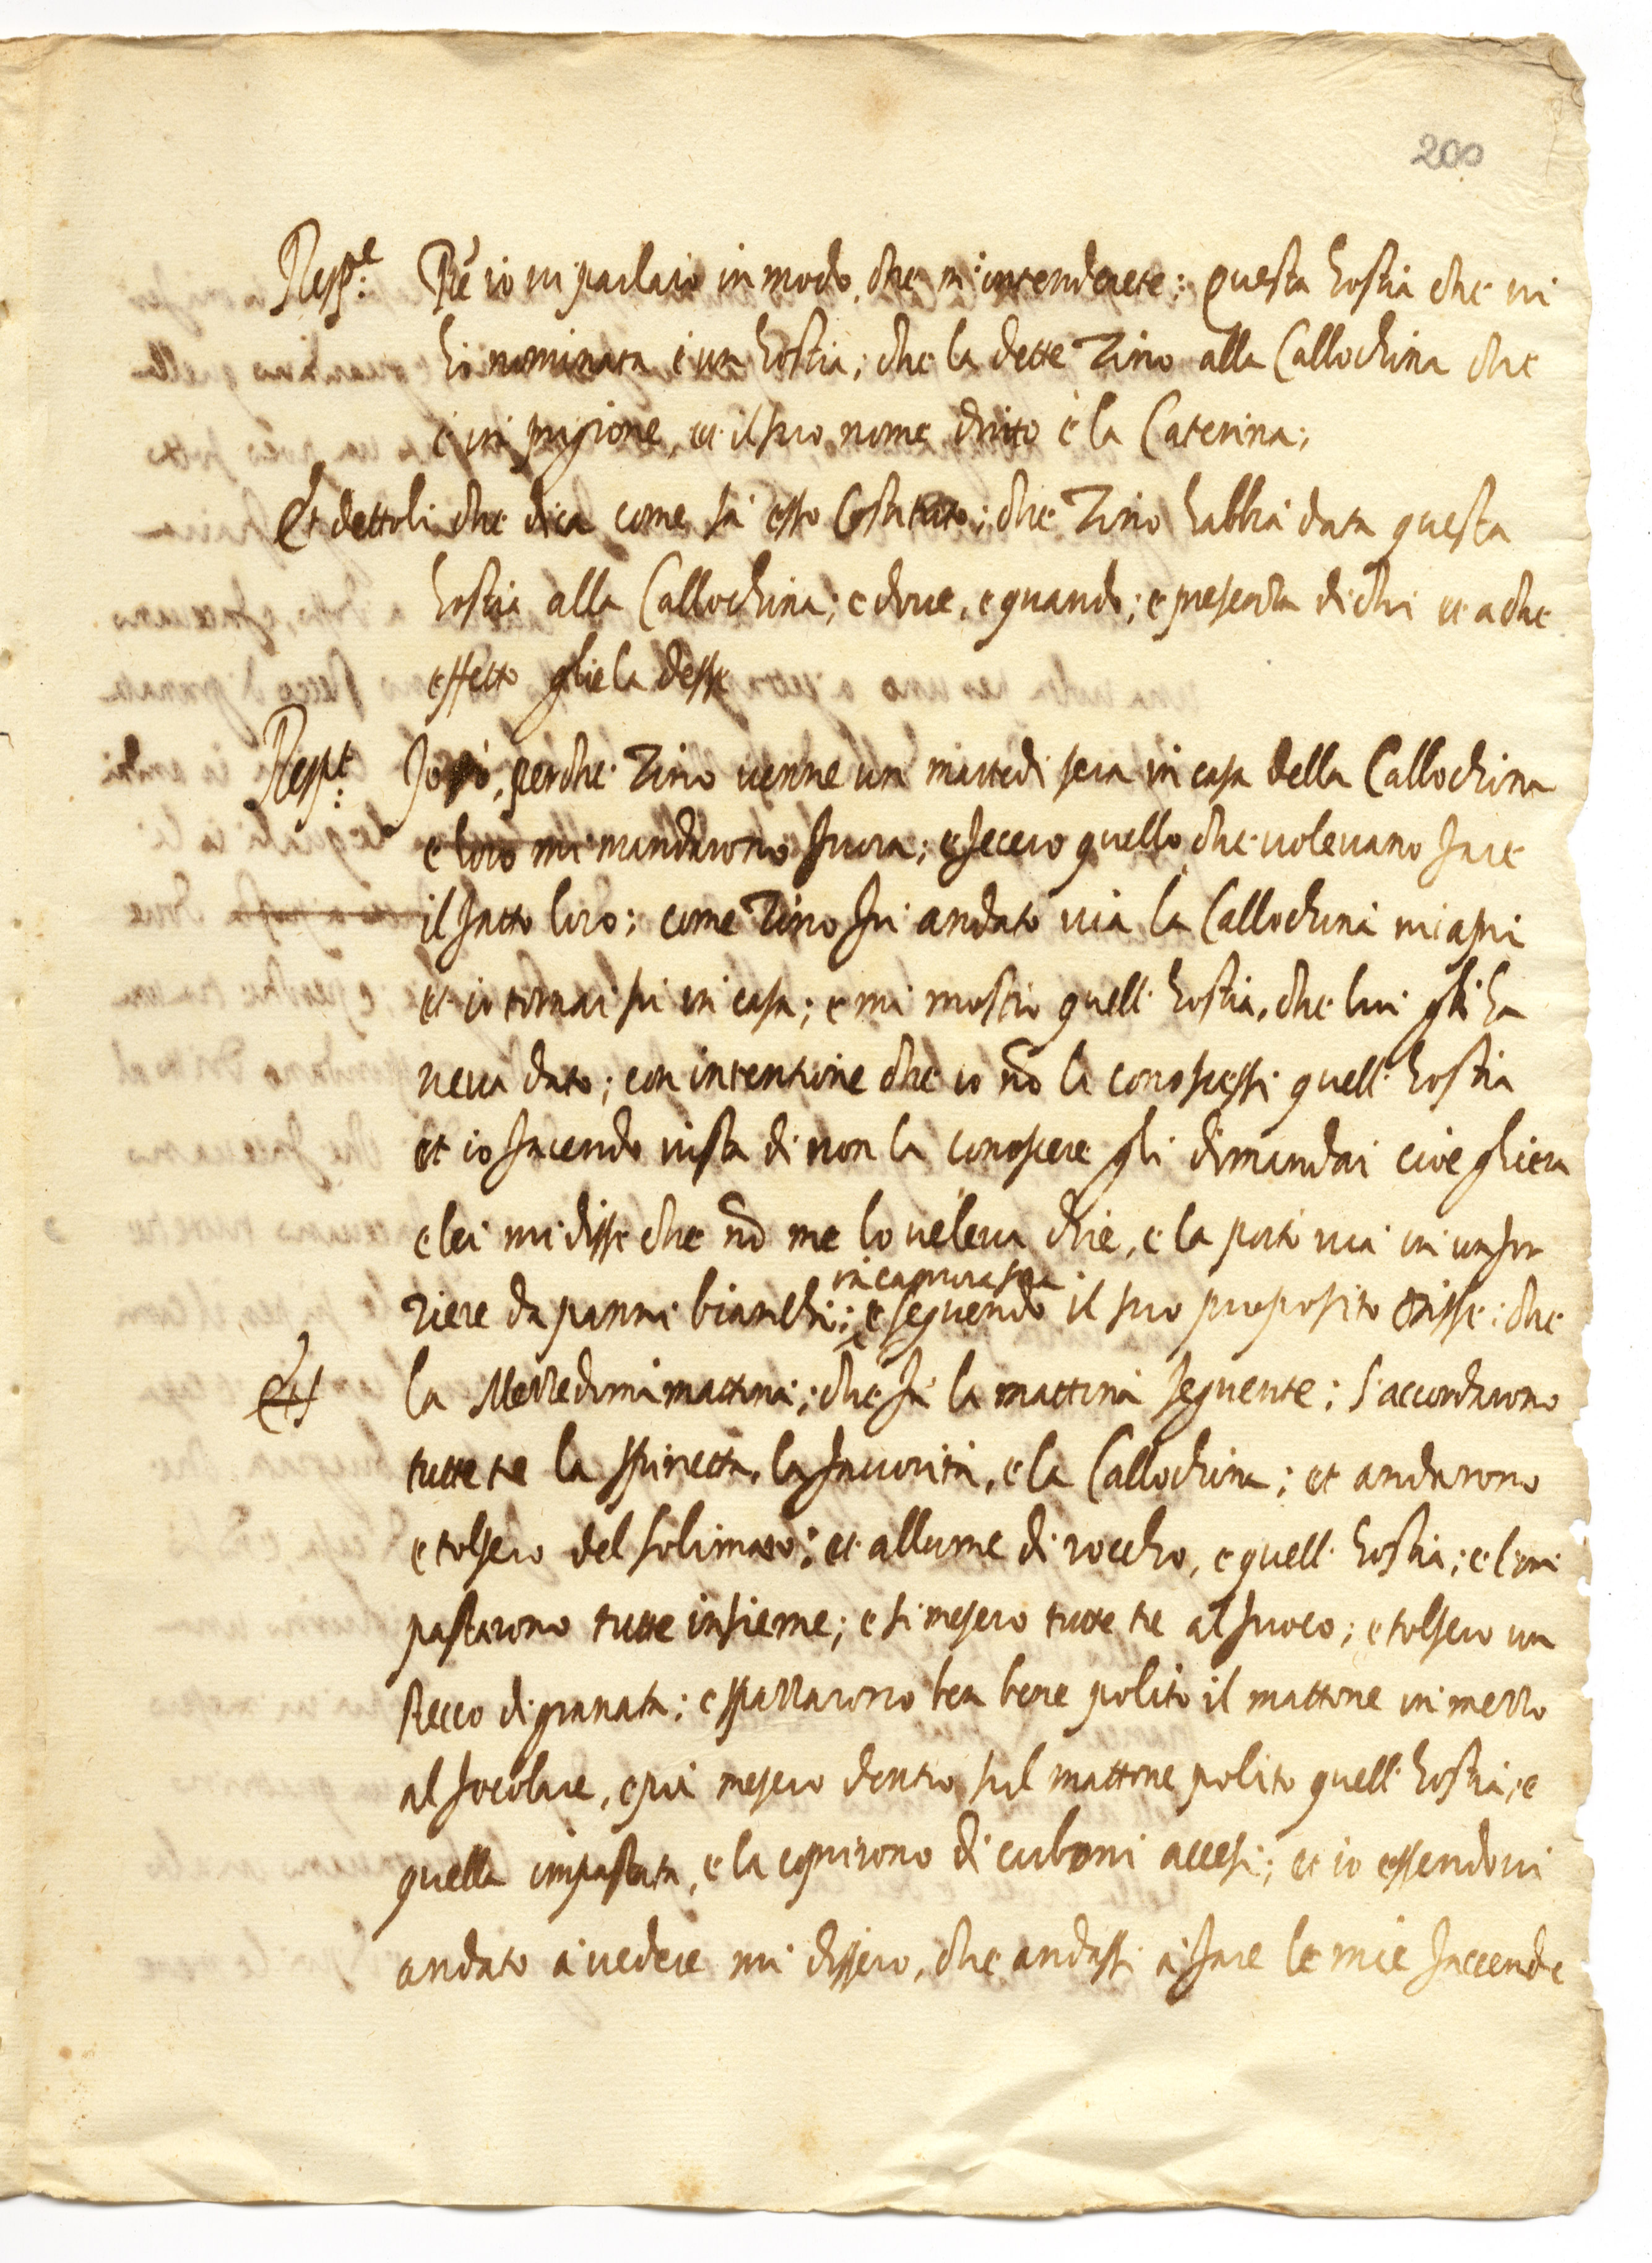 200
Resp.e Pre io vi parlaro in modo, che m'intenderete: questa hostia che vi
ho nominata è un hostia; che la dette Tino alla Callochina che
è in prigione, et il suo nome dritto è la Caterina;
Et dettoli che dica come sà esso Costituto; che Tino habbia data questa
hostia alla Callochina; e dove, e quando; e presentia di chi et a che
effetto gliela desse
Resp.e Io sò, perche Tino venne un martedi sera in casa della Callochina
e loro mi mandarono fuora; e fecero quello che volevano fare
il fatto loro; come Tino fu andato via la Callochina mi aprì
et io tornai su in casa; e mi mostrò quell' hostia, che lui gli ha
veva dato; con intentione che io nõ la conoscessi quell' hostia
et io facendo vista di non la conoscere gli dimandai cio e gliera
e lei mi disse che nõ me lo voleva dire, e la portò via in un for
in camera sua
ziere da panni bianchi; e seguendo il suo proposito disse: che
Et la Merzedima mattina; che fu la mattina seguente; s'accordarono
tutte tre la Spiretta, la Favorita, e la Callochina; et andarono
e tolsero del solimato; et allume di roccho, e quell' hostia; e l'im
pastarono tutte insieme; e si mesero tutte tre al fuoco; e tolsero un
stecco di granata; e spazzarono ben bene polito il mattone in mezzo
al focolare, e poi mesero dentro sul mattone polito quell' hostia; e
quella impastata, e la coprirono di carboni accesi; et io essendovi
andato à vedere mi dissero, che andassi à fare le mie faccende